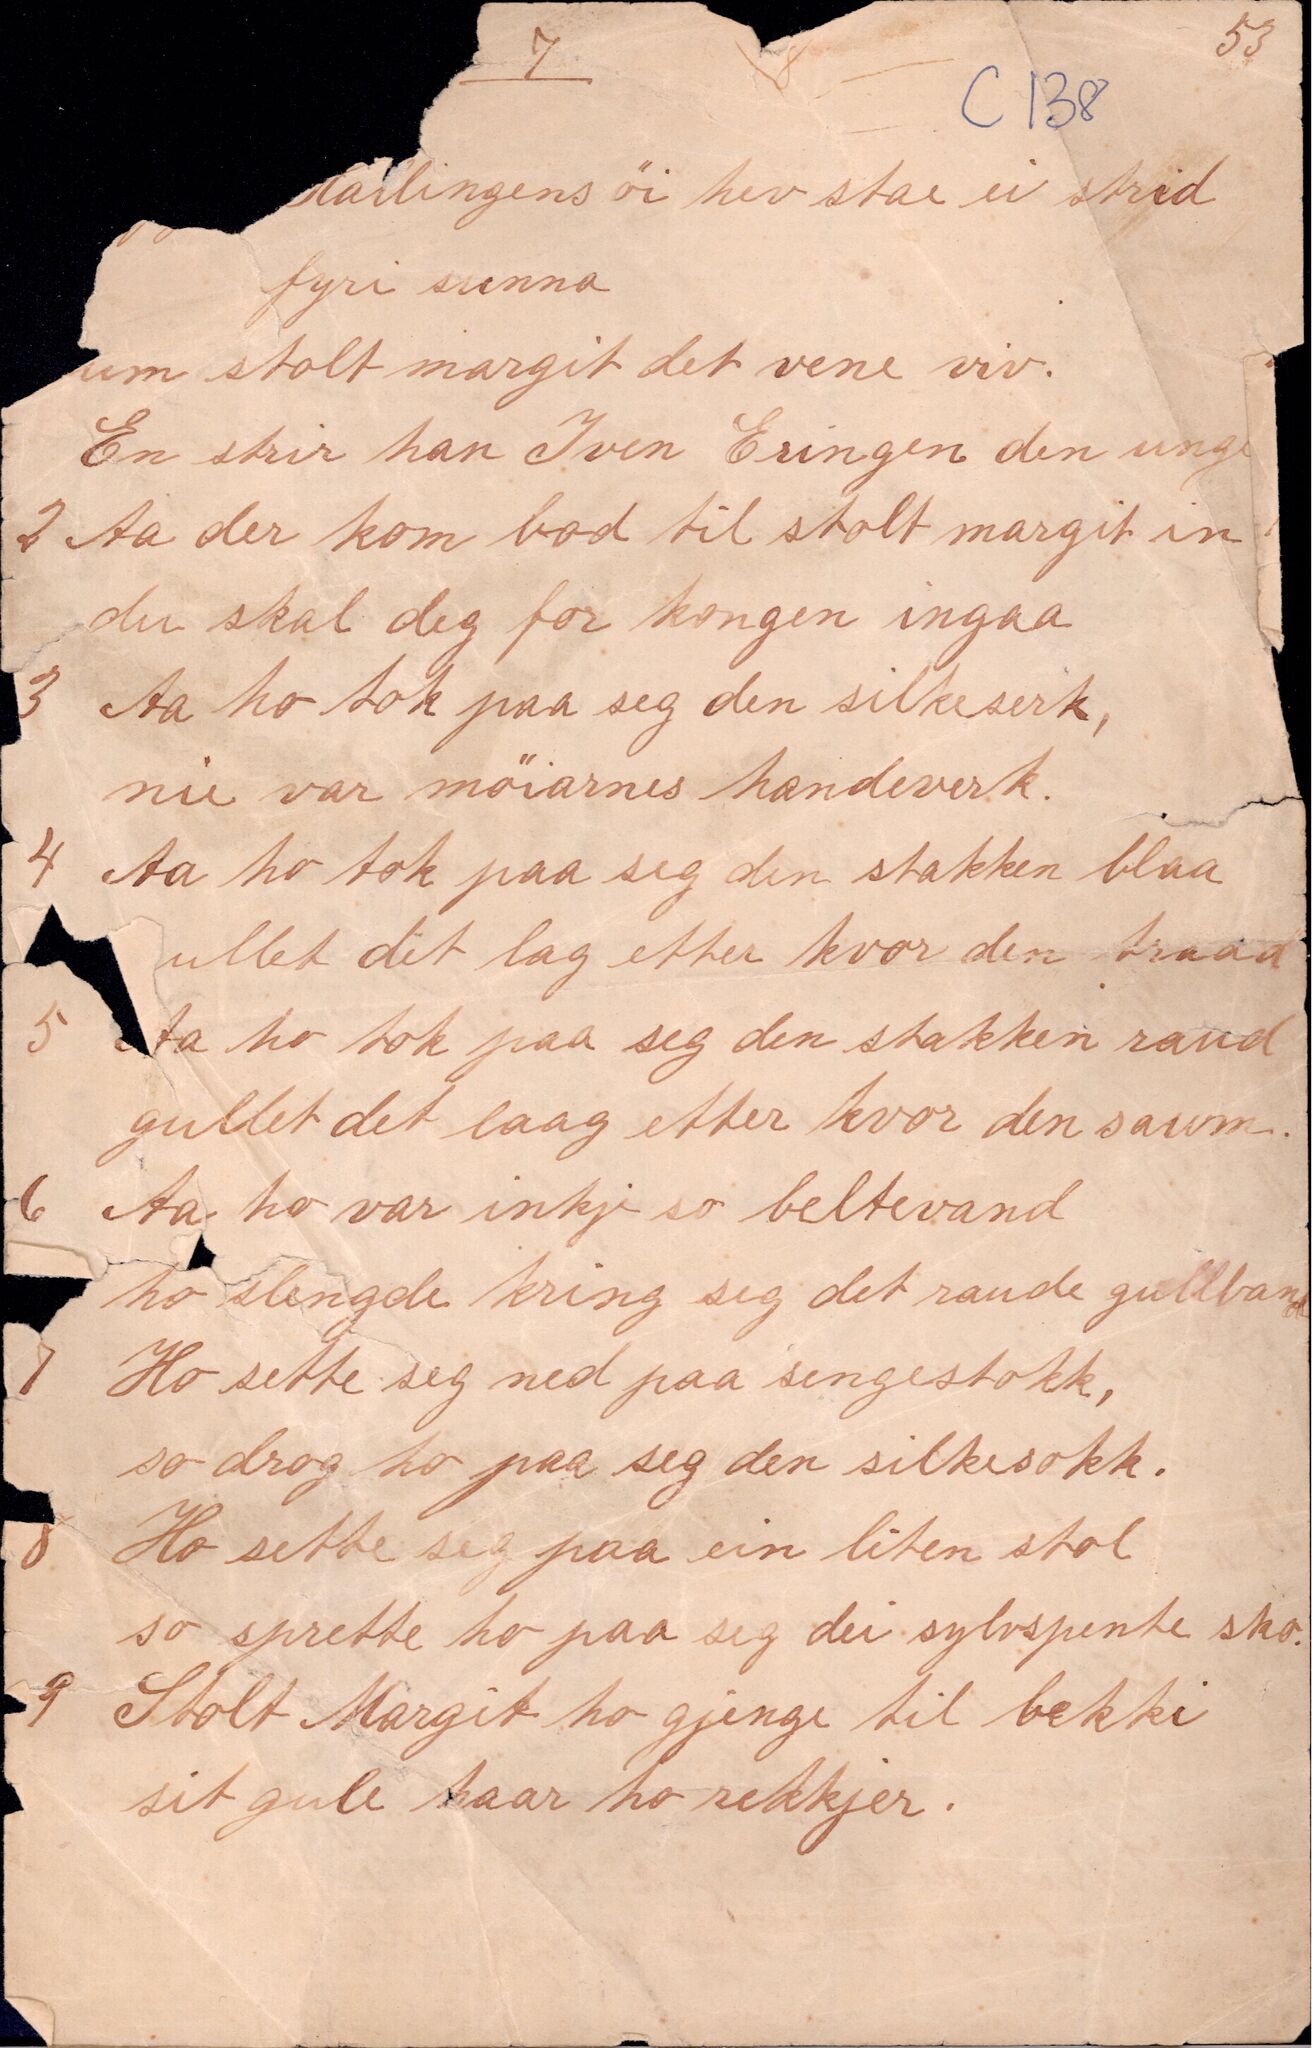 7
53
C 138
öi hev stae ei strid
fyri sunna
um stolt margit det vene viv.
En strir han Iven Eringen den unge
2 Aa der kom bod til stolt margit in
du skal deg for kongen ingaa
3 Aa ho tok paa seg den silkeserk,
nie var möiarnes handeverk.
4 Aa ho tok paa seg den stakken blaa
ullet dit lag etter kvor den traad
5 Aa ho tok paa seg den stakken raud
gullet det laag etter kvor den saum.
6 Aa ho var inkje so beltevand
ho slengde kring seg det raude gullband
7 Ho sette seg ned paa sengestokk,
so drog ho paa seg den silkesokk.
8 Ho sette seg paa ein liten stol
so sprette ho paa seg dei sylvspente sko.
9 Stolt Margit ho gjenge til bekki
sit gule haar ho rekkjer.